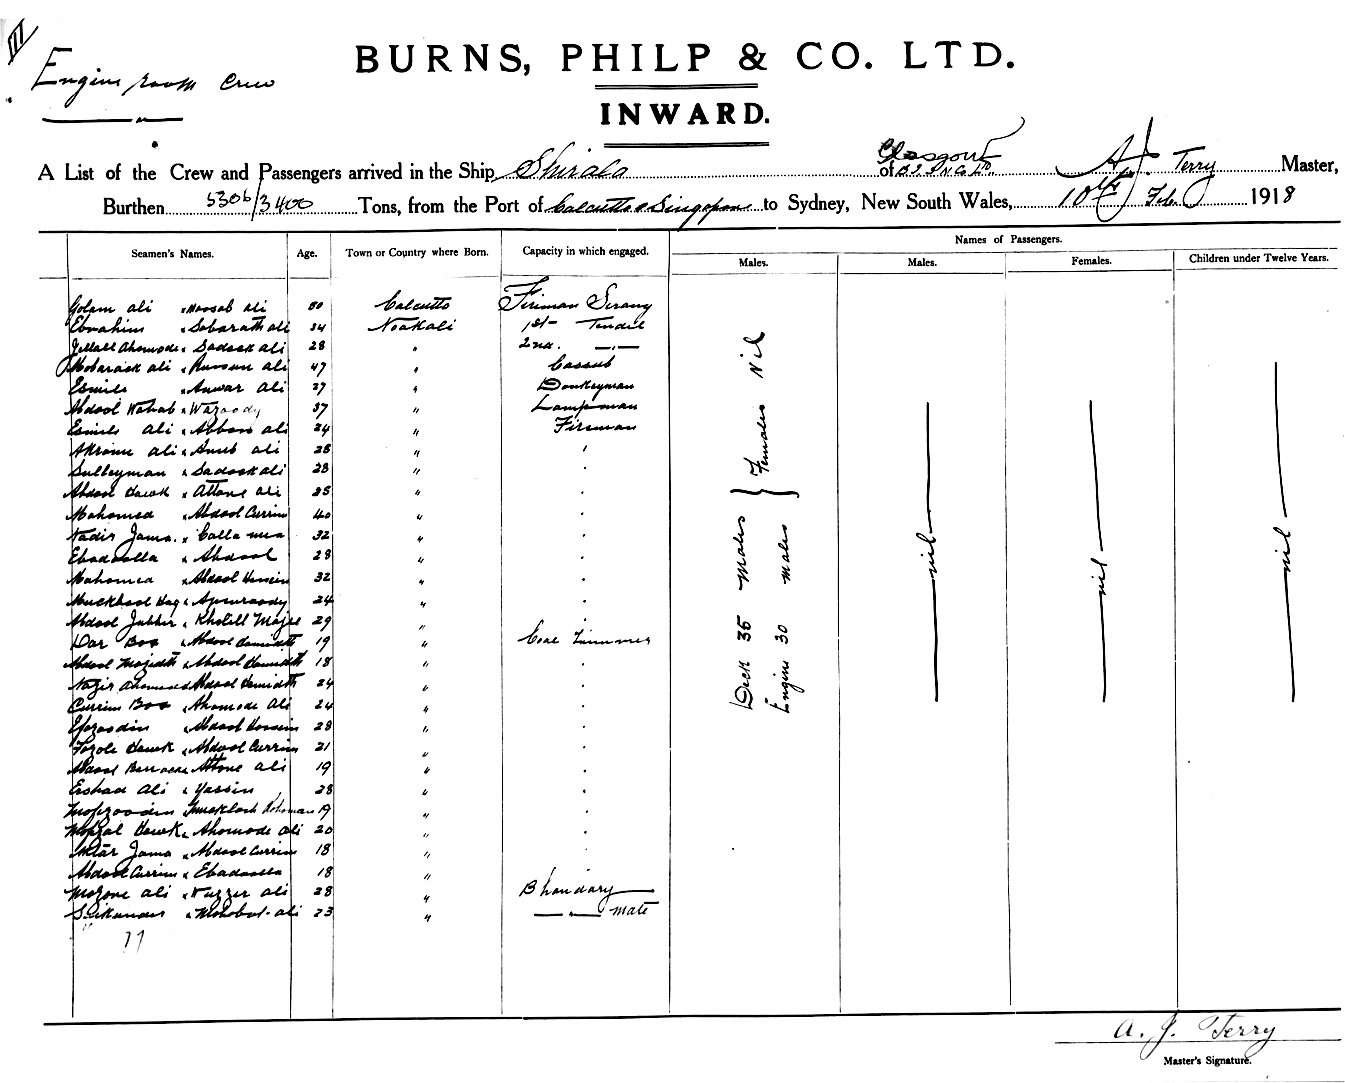 III
Engine room Crew
BURNS, PHILP & CO. LTD.
INWARD.
A List of the Crew and Passengers arrived in the Ship Shirala Glasgow of B.I.S.N.Co Ltd. A J. Terry Master,
Burthen 5306/3400 Tons, from the Port of Calcutta & Singapore to Sydney, New South Wales, 10th Feb 1918
Names of Passengers.
Seamen's Names. Age. Town or Country where Born. Capacity in which engaged. Males. Males. Females. Children under Twelve Years.
Golam Ali " Moosab Ali 50 Calcutta Fireman Serang
Ebrahim " Sobarath Ali 34 Noakali 1st Tindel
Ahomode " Sadock Ali 28 " 2nd. —"—
Mobarack Ali " Ali 47 " Cassub
Esmile " Anwar Ali 27 " Donkeyman
Abdool Wahab " Wazoody 37 " Lampman
Esmile Ali " Abbas Ali 24 " Fireman
Akrome Ali " Ali 28 " "
Sulleyman " Sadock Ali 28 " "
Abdool Hawk " Attone Ali 25 " "
Mahomed " Abdool Currim 40 " "
Nadir Jama " Calla mea 32 " "
Ebadoolla " Abdool 28 " "
Mahomed " Abdool Hossein 32 " "
Muckbool Hag " 24 " "
Abdool Jubber " Kholill Majee 29 " "
Dar Box " Abdool Hamidth 19 " Coal Trimmer
Abdool Mozidth " Abdool Hamidth 18 " "
Nazir Ahomed " Abdool Hamidth 24 " "
Currim Box " Ahomode Ali 24 " "
Efazoodin " Abdool Hossein 28 " "
Fozole Hawk " Abdool Currim 21 " "
Abdool " Attone Ali 19 " "
Ershad Ali " Yassin 28 " "
Mofizoodin Rohoman 19 " "
Mofzal Hawk " Ahomode Ali 20 " "
Aktar Jama " Abdool Currim 18 " "
Abdool Currim " Ebadoolla 18 " "
Mozone Ali " Nuzzer Ali 28 " Bhandary
Seikander " Mohobut Ali 23 " —"— mate
Deck 35 Males
Engine 30 Males
} Females Nil
nil
nil
nil
A. J. Terry
Master's Signature.